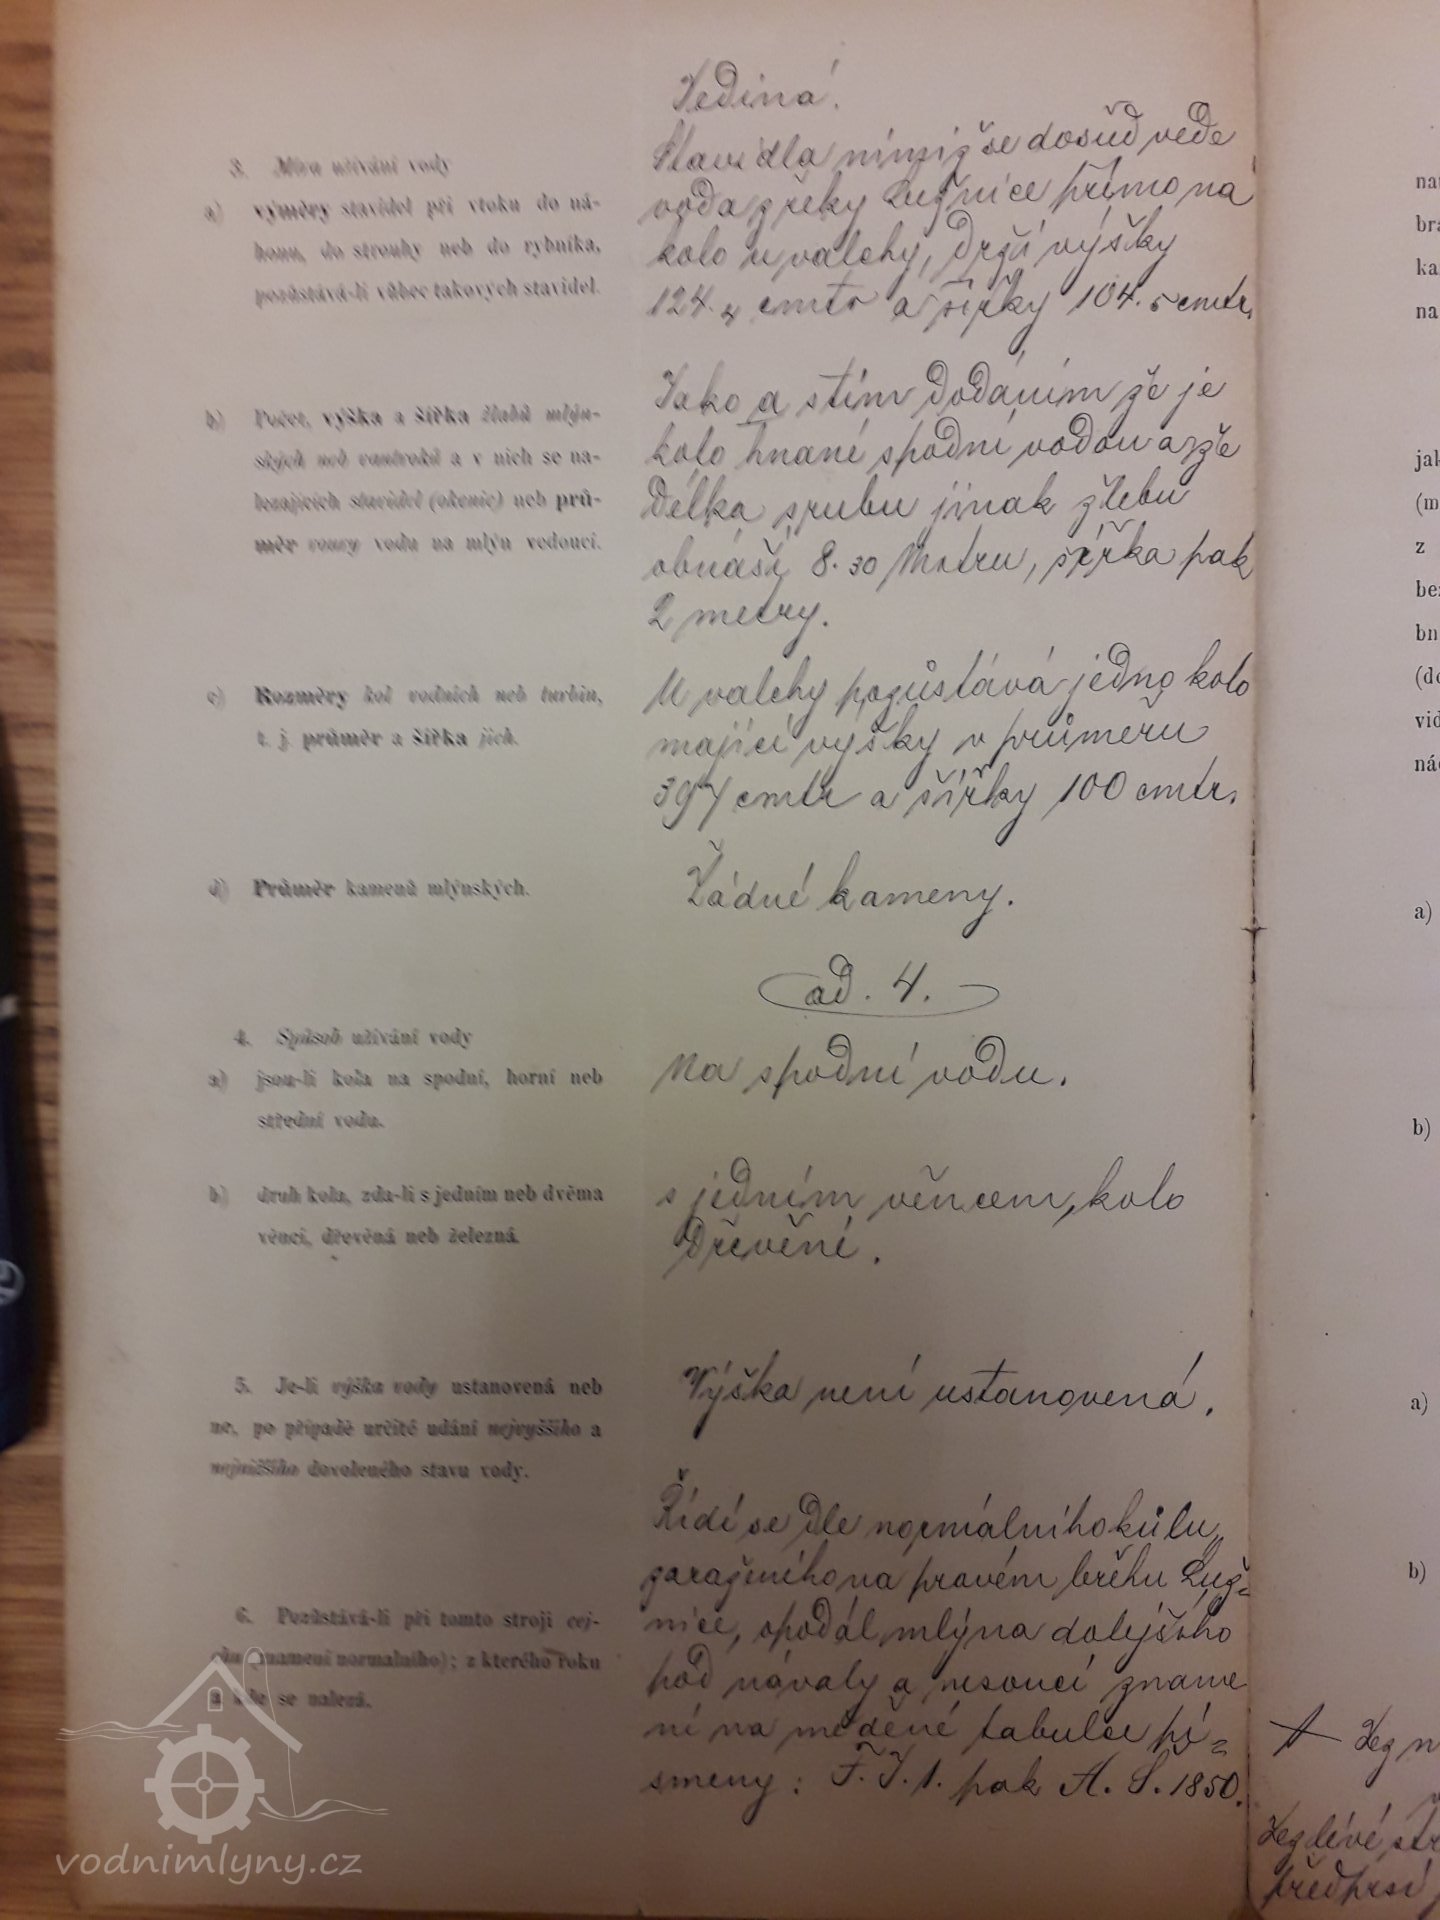 Jediná.
3. Míra užívání vody
a) výměry stavidel při vtoku do ná-
honu, do strouhy neb do rybníka,
pozůstává-li vůbec takových stavidel.
Stavidla nimiž se dosud vede
voda z řeky Lužnice přímo na
kolo u valchy, drží výšky
124.4 cmtr a šířky 104.5 cmtr.
b) Počet, výška a šířka žlabů mlýn-
ských neb vantroků a v nich se na-
lezajících stavidel (okenic) neb prů-
měr roury vodu na mlýn vedoucí.
Jako a s tím dodáním že je
kolo hnané spodní vodou a že
délka srubu jinak žlebu
obnáší 8.30 Metru, šířka pak
2 metry.
c) Rozměry kol vodních neb turbin,
t. j. průměr a šířka jich.
U valchy pozůstává jedno kolo
mající výšky v průměru
397 cmtr a šířky 100 cmtr.
d) Průměr kamenů mlýnských.
Žádné kameny.
ad. 4.
4. Spůsob užívání vody
a) jsou-li kola na spodní, horní neb
střední vodu.
Na spodní vodu.
b) druh kola, zda-li s jedním neb dvěma
věnci, dřevěná neb železná.
s jedním věncem, kolo
dřevěné.
5. Je-li výška vody ustanovená neb
ne, po případě určité udání nejvyššího a
nejnižšího dovoleného stavu vody.
Výška není ustanovená.
6. Pozůstává-li při tomto stroji cej-
cha (znamení normalního); z kterého roku
a kde se nalezá.
Řídí se dle normálního kůlu,
zaraženého na pravém břehu Luž=
nice, opodál mlýna dolejšího
pod návaly a nesoucí zname
ní na měděné tabulce pí=
smeny: F. J. 1. pak A. S. 1850.
vodnimlyny.cz
na
bra
ka
na
jak
(m
z
bez
bn
(do
vid
nác
a)
b)
a)
b)